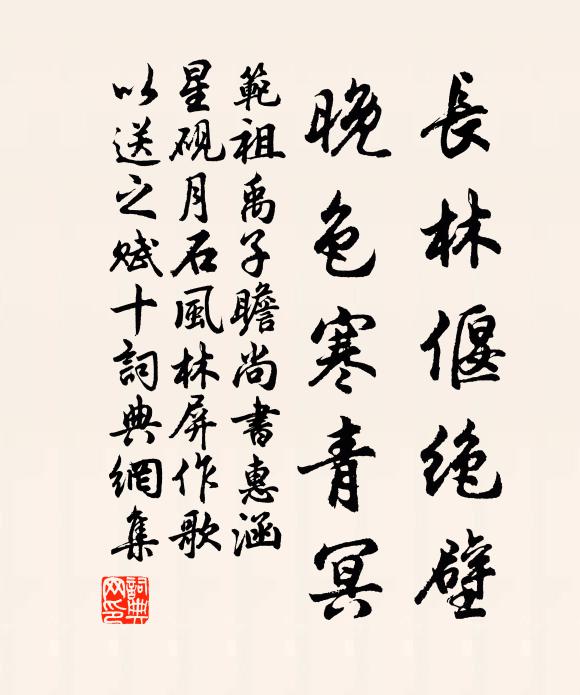 長林偃絶壁
晚色寒青冥
範祖禹子瞻尚書惠涵
星硯月石風林屏作歌
以送之賦十詞典網集
詞典网印